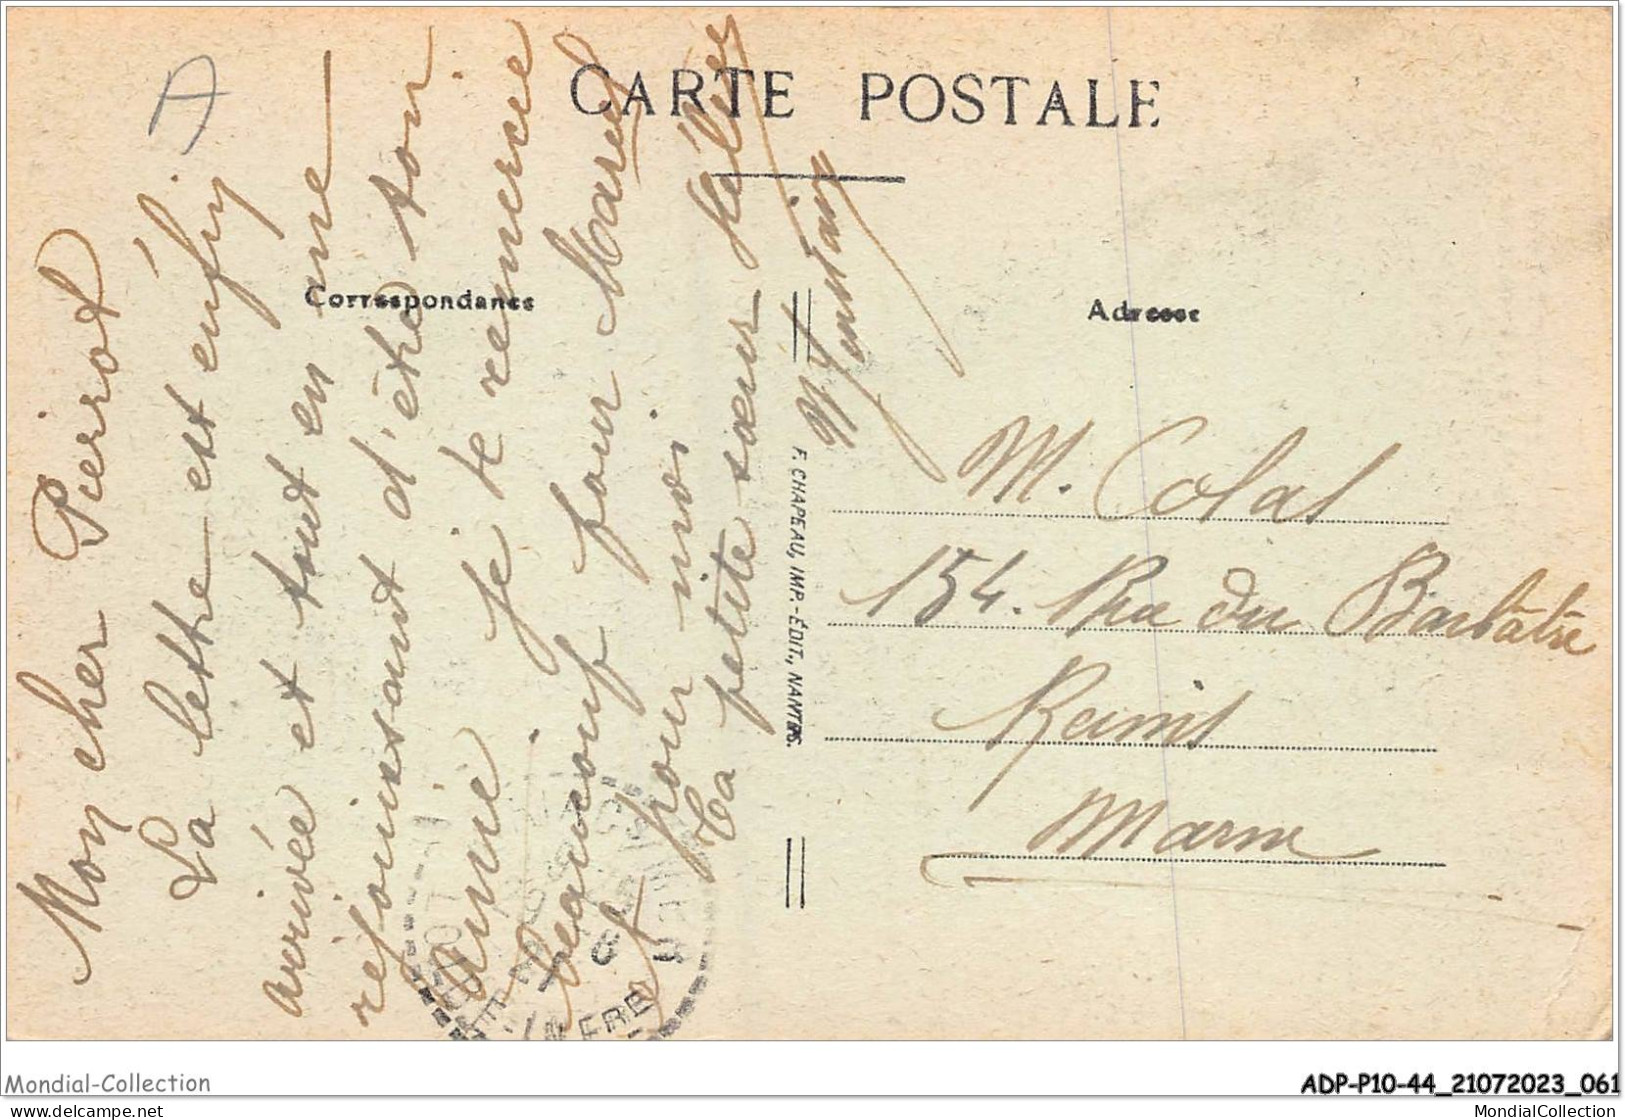 A
CARTE POSTALE
Correspondance
Adresse
Mon cher Pierrot
La lettre est enfin
arrivée et tout en me
réjouissant d'être ton
amie je te remercie
beaucoup pour Marcel
et pour moi
Ta petite sœur Hélène
M. Colas
154. Rue du Barbâtre
Reims
Marne
F. CHAPEAU, IMP.-ÉDIT., NANTES.
Mondial-Collection
ADP-P10-44_21072023_061
www.delcampe.net
MondialCollection